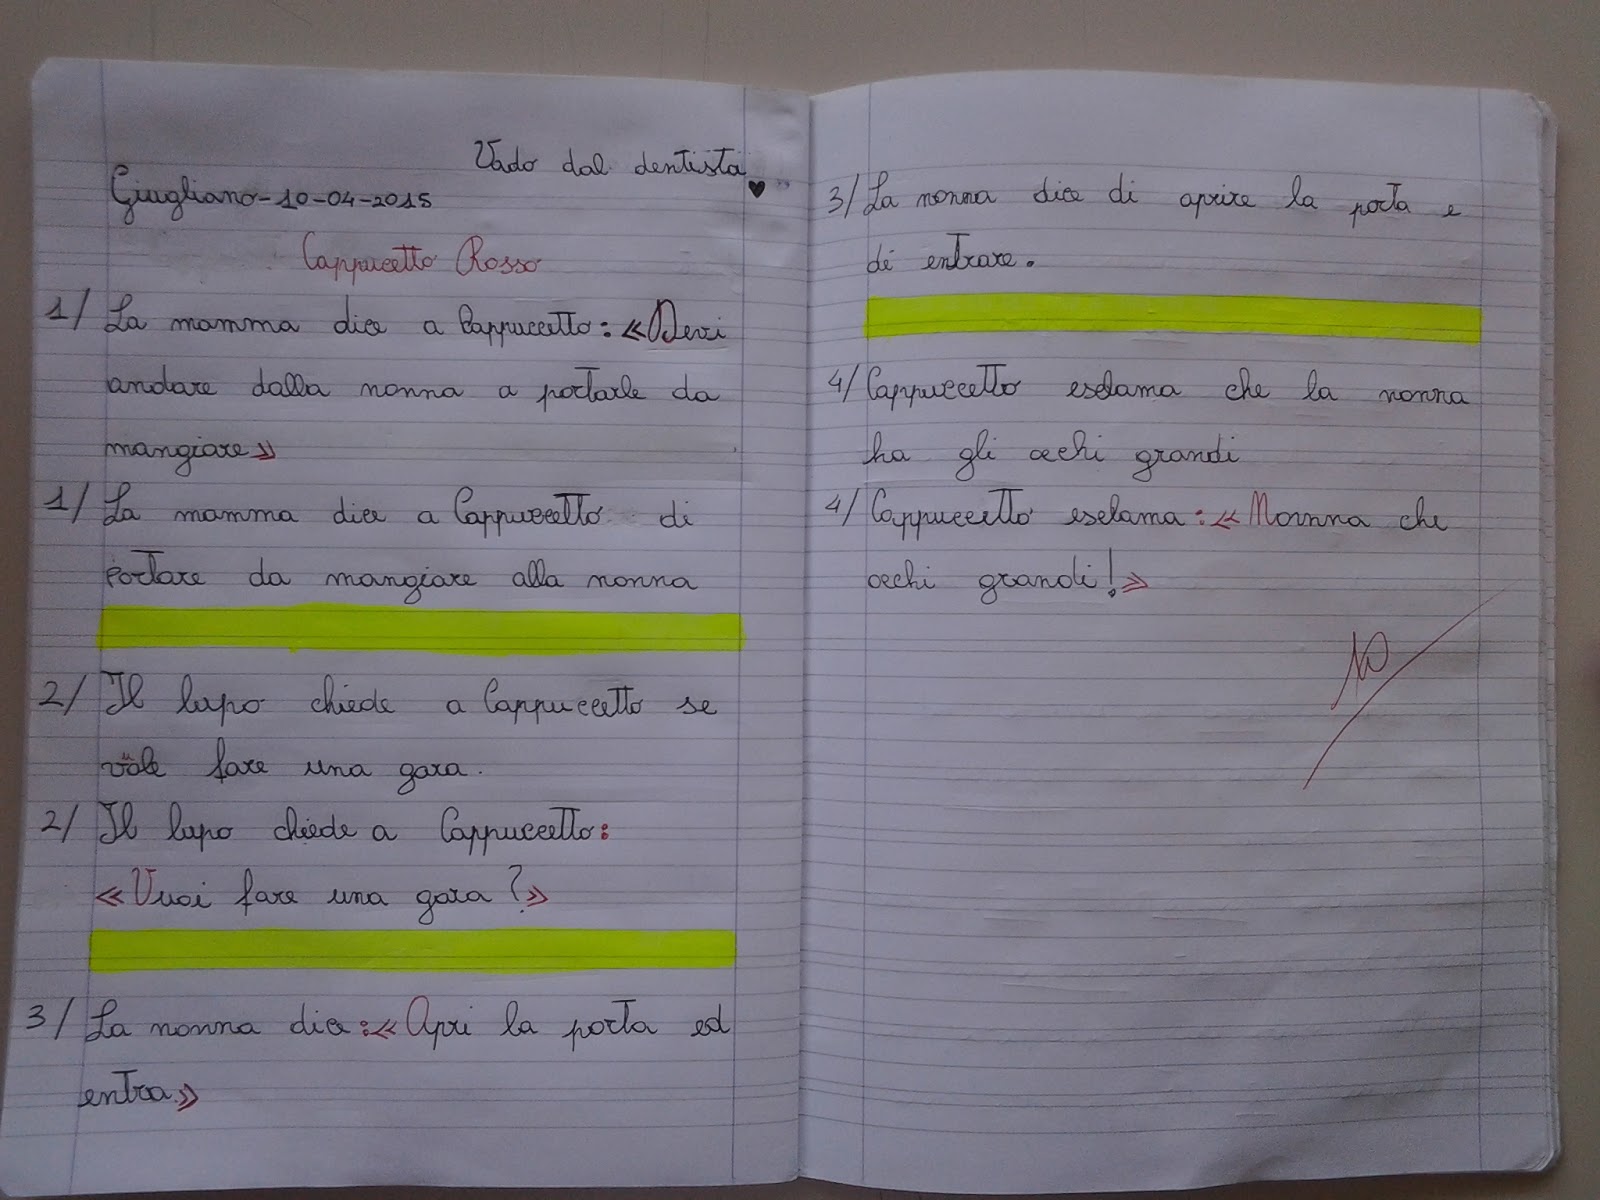 Vado dal dentista
Giugliano-10-04-2015
Cappuccetto Rosso
1/ La mamma dice a Cappuccetto: «Devi
andare dalla nonna a portarle da
mangiare»
1/ La mamma dice a Cappuccetto di
portare da mangiare alla nonna
2/ Il lupo chiede a Cappuccetto se
vuole fare una gara.
2/ Il lupo chiede a Cappuccetto:
«Vuoi fare una gara?»
3/ La nonna dice: «Apri la porta ed
entra.»
3/ La nonna dice di aprire la porta e
di entrare.
4/ Cappuccetto esclama che la nonna
ha gli occhi grandi
4/ Cappuccetto esclama: «Nonna che
occhi grandi!»
10